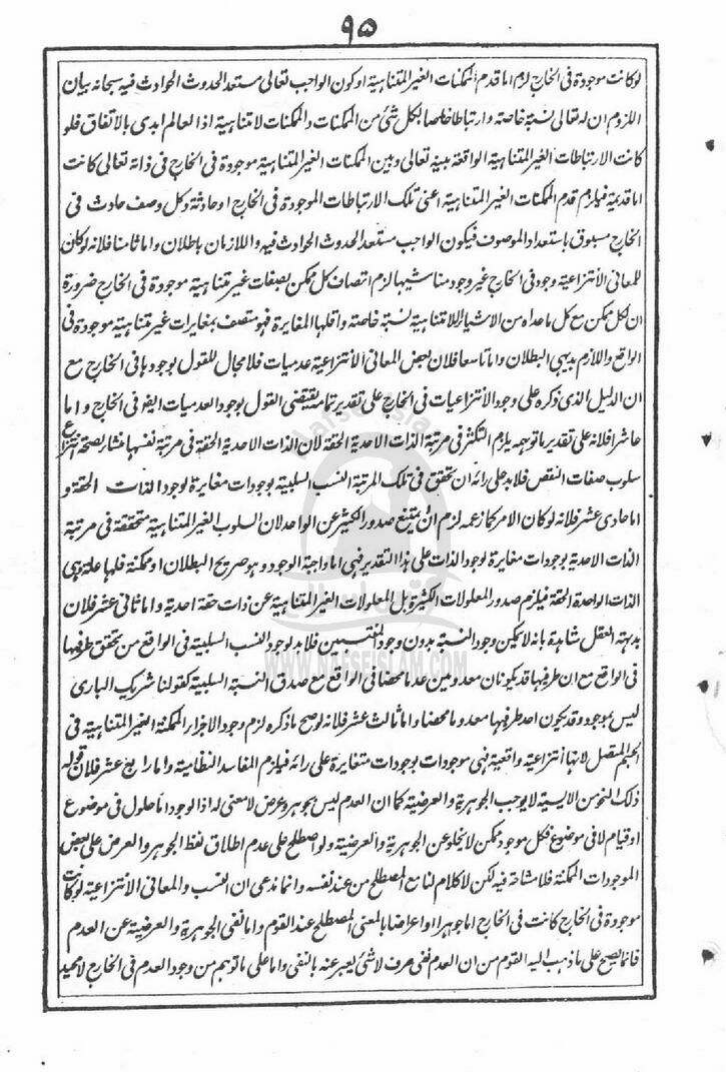 ٩٥
لو كانت موجودة فى الخارج لزم اما قدم الممكنات الغير المتناهية او كون الواجب تعالى مستعد الحدوث الحوادث فيه سبحانه بيان
اللزوم ان له تعالى نسبة خاصة وارتباطا خاصا بكل شئ من الممكنات والممكنات لا متناهية اذا لعالم ابدى بالاتفاق فلو
كانت الارتباطات الغير المتناهية الواقعة بينه تعالى وبين الممكنات الغير المتناهية موجودة فى الخارج فى ذاته تعالى كانت
اما قديمة فيلزم قدم الممكنات الغير المتناهية اعنى تلك الارتباطات الموجودة فى الخارج او حادثة وكل وصف حادث فى
الخارج مسبوق باستعداد الموصوف فيكون الواجب مستعد الحدوث الحوادث فيه واللازمان باطلان واما ثامنا فلانه لو كان
للمعانى الانتزاعية وجود فى الخارج غير وجود مناشيها لزم اتصاف كل ممكن بصفات غير متناهية موجودة فى الخارج ضرورة
ان لكل ممكن مع كل ما عداه من الاشياء اللامتناهية نسبة خاصة واقلها المغايرة فهو متصف بمغايرات غير متناهية موجودة فى
الواقع واللازم بديهى البطلان واما تاسعا فلان بعض المعانى الانتزاعية عدميات فلا مجال للقول بوجودها فى الخارج مع
ان الدليل الذى ذكره على وجود الانتزاعيات فى الخارج على تقدير تمامه يقتضى القول بوجود العدميات ايضا فى الخارج واما
عاشرا فلانه على تقدير ما توهمه يلزم التكثر فى مرتبة الذات الاحدية الحقة لان الذات الاحدية الحقة فى مرتبة نفسها منشأ لصحة انتزاع
سلوب صفات النقص فلابد على رائه ان تحقق فى تلك المرتبة النسب السلبية بوجودات مغايرة لوجود الذات الحقة و
اما حادى عشر فلانه لو كان الامر كما زعمه لزم ان لا يمتنع صدور الكثير عن الواحد لان السلوب الغير المتناهية متحققة فى مرتبة
الذات الاحدية بوجودات مغايرة لوجود الذات على هذا التقدير فهى اما واجبة الوجود وهو صريح البطلان او ممكنة فلها علة هى
الذات الواحدة الحقة فيلزم صدور المعلولات الكثيرة بل المعلولات الغير المتناهية عن ذات حقة احدية واما ثانى عشر فلان
بديهة العقل شاهدة بانه لا يمكن وجود النسبة بدون وجود المنتسبين فلابد لوجود النسب السلبية فى الواقع من تحقق طرفيها
فى الواقع مع ان طرفيها قد يكونان معدومين عدما محضا فى الواقع مع صدق النسبة السلبية كقولنا شريك البارى
ليس بموجود وقد يكون احد طرفيها معدوما محضا واما ثالث عشر فلانه لو صح ما ذكره لزم وجود الاجزاء الممكنة الغير المتناهية فى
الجسم المتصل لانها انتزاعية واقعية فهى موجودات بوجودات متغايرة على رائه فيلزم المفاسد النظامية واما رابع عشر فلان قوله
ذلك النحو من الايسية لا يوجب الجوهرية والعرضية كما ان العدم ليس بجوهر وعرض لا معنى له اذا لوجود اما حلول فى موضوع
او قيام لا فى موضوع فكل موجود ممكن لا يخلو عن الجوهرية والعرضية ولو اصطلح على عدم اطلاق لفظ الجوهر والعرض على بعض
الموجودات الممكنة فلا مشاحة فيه لكن لا كلام لنا مع المصطلح من عند نفسه وانما ندعى ان النسب والمعانى الانتزاعية لو كانت
موجودة فى الخارج كانت فى الخارج اما جوهرا او اعراضا بالمعنى المصطلح عند القوم واما نفى الجوهرية والعرضية عن العدم
فانما يصح على ما ذهب اليه القوم من ان العدم نفى صرف لا شئ يعبر عنه بالنفى واما على ما توهم من وجود العدم فى الخارج لا محيد
WWW.NAFSEISLAM.COM